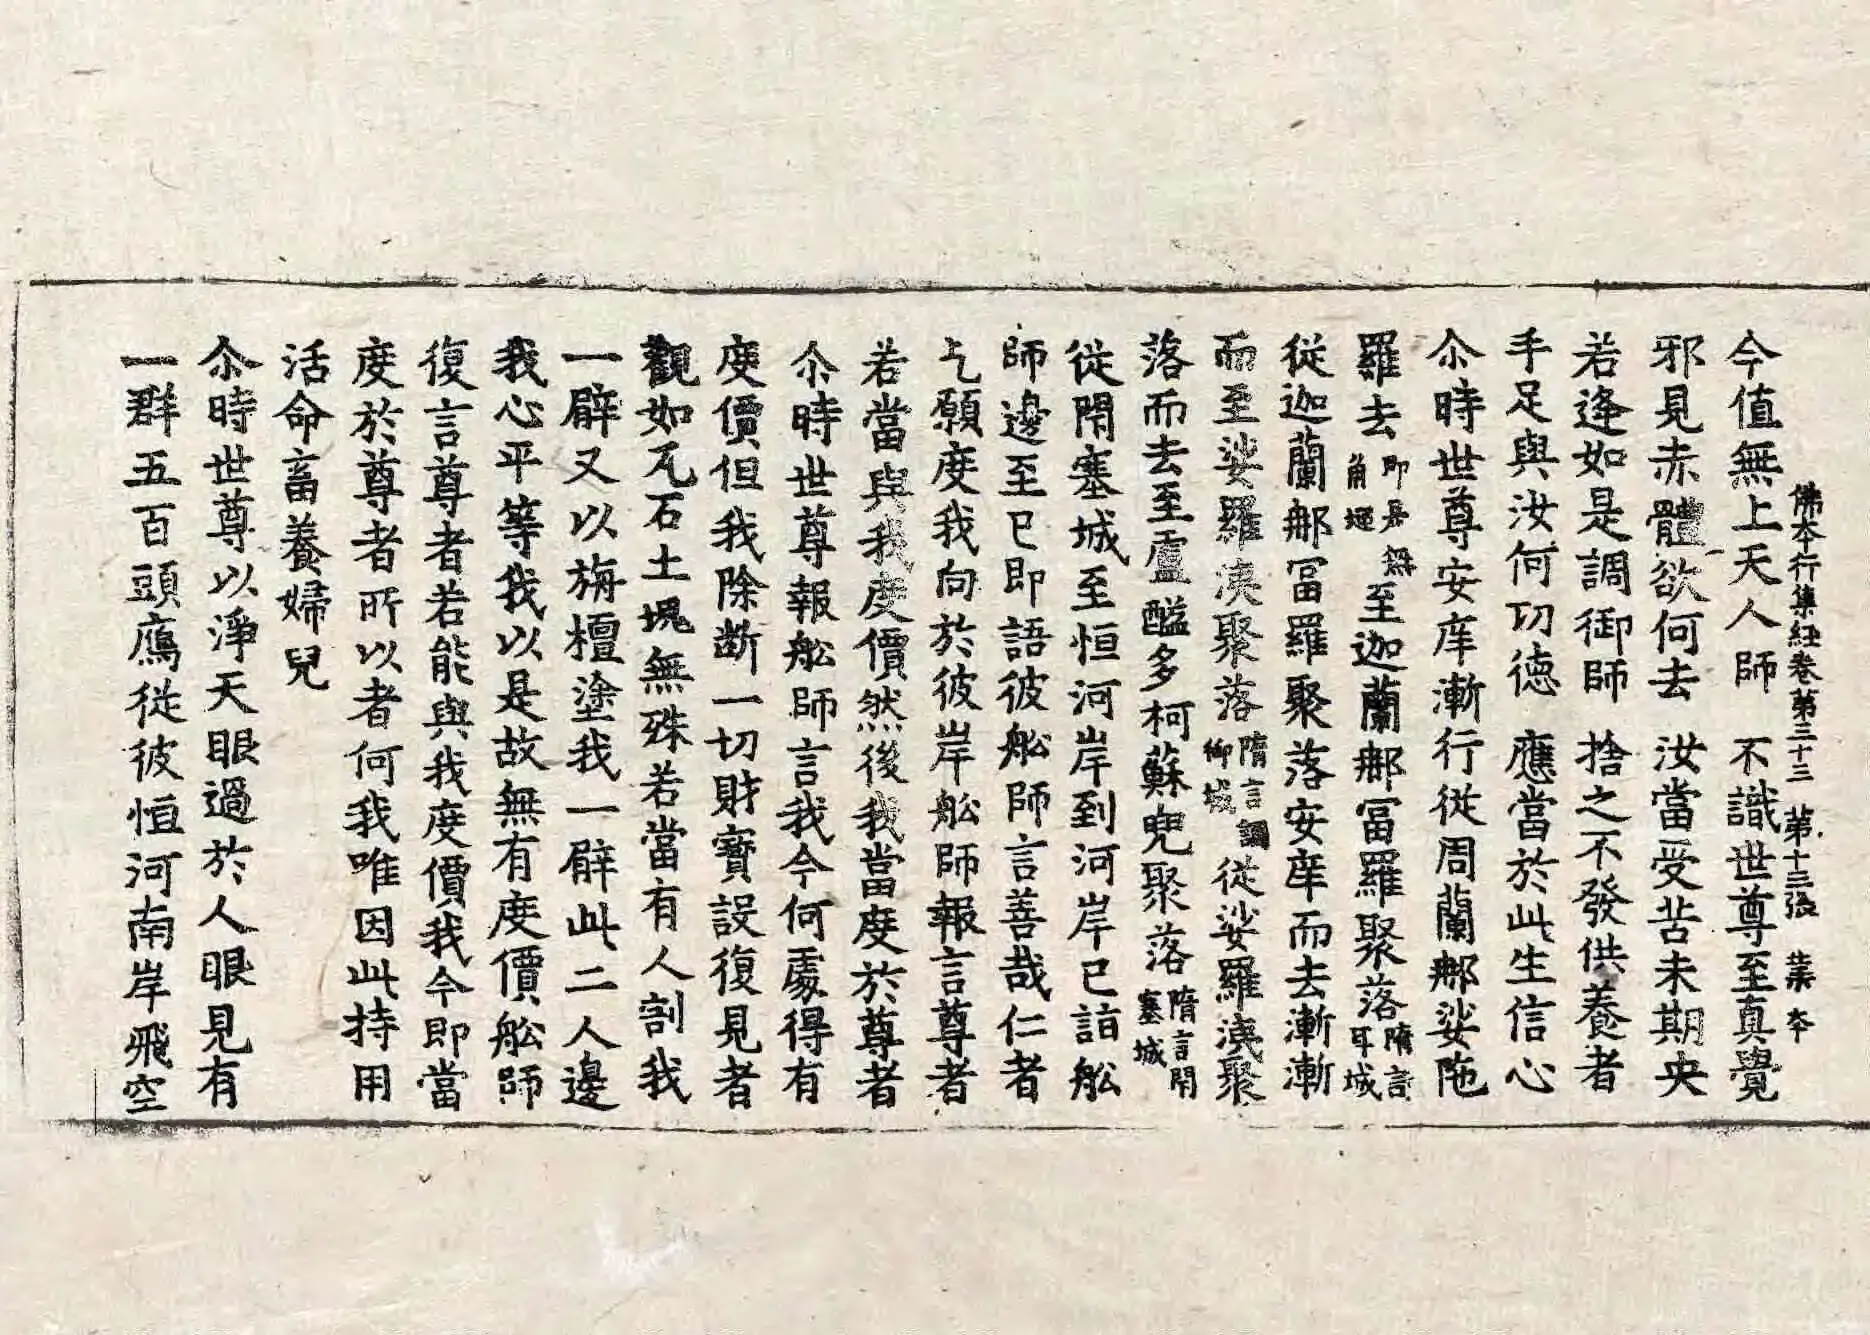 佛本行集經卷第三十三 第十三張 業本
今值無上天人師 不識世尊至真覺
邪見赤體欲何去 汝當受苦未期央
若逢如是調御師 捨之不發供養者
手足與汝何切德 應當於此生信心
尒時世尊安庠漸行從周蘭那娑陁
羅去即是角至迦蘭那冨羅聚落隋言耳城
從迦蘭那冨羅聚落安庠而去漸漸
而至娑羅洟聚落隋言調御城從娑羅洟聚
落而去至盧醯多柯蘇兠聚落隋言閇塞城
從閇塞城至恒河岸到河岸已詣舩
師邊至已即語彼舩師言善哉仁者
乞願度我向於彼岸舩師報言尊者
若當與我度價然後我當度於尊者
尒時世尊報舩師言我今何處得有
度價但我除断一切財寶設復見者
觀如瓦石土塊無殊若當有人割我
一臂又以栴檀塗我一臂此二人邊
我心平等我以是故無有度價舩師
復言尊者若能與我度價我今即當
度於尊者所以者何我唯因此持用
活命畜養婦兒
尒時世尊以淨天眼過於人眼見有
一群五百頭鴈從彼恒河南岸飛空